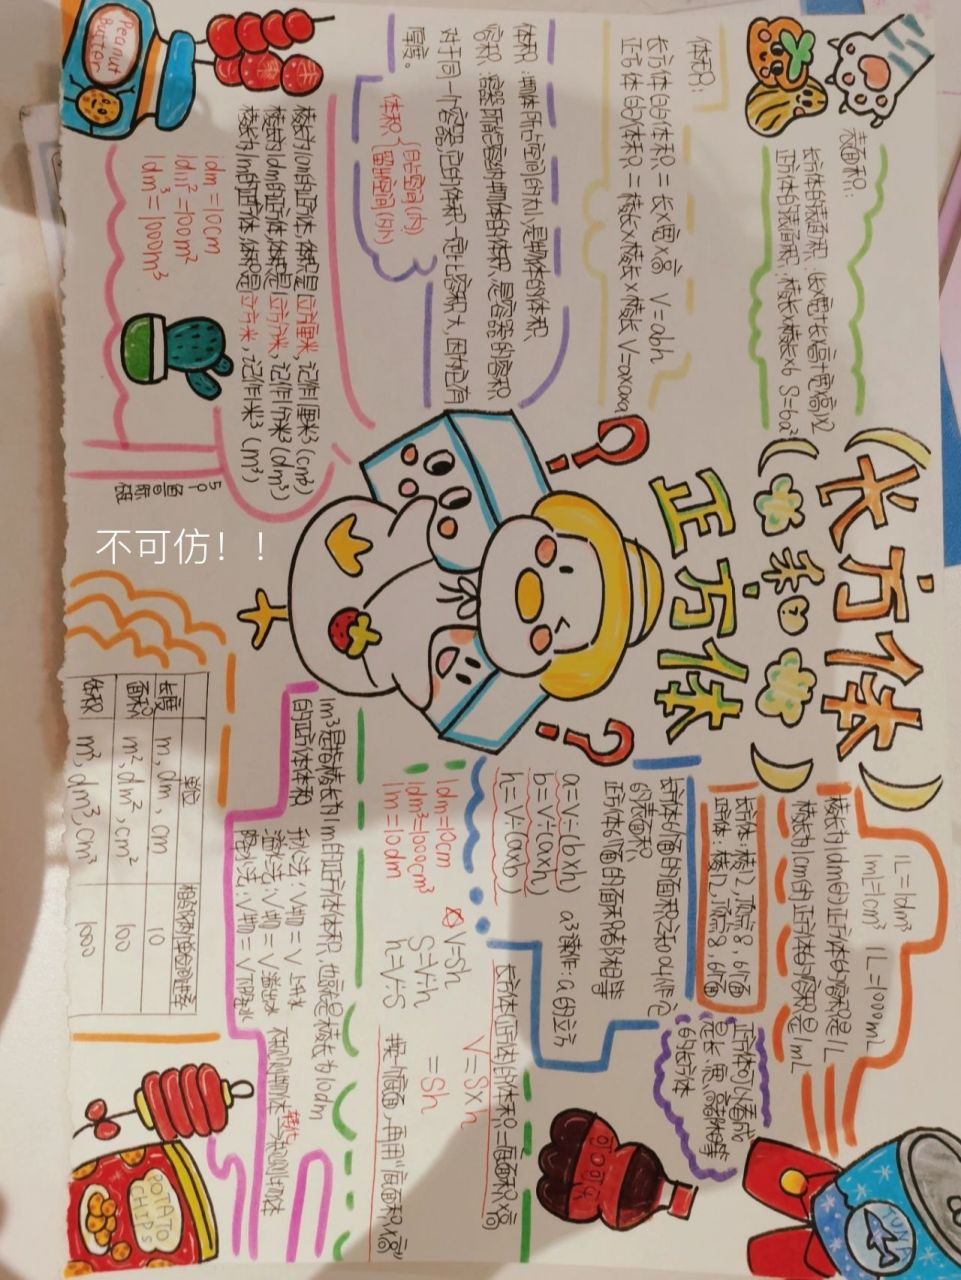 长方体
和
正方体
表面积：
长方体的表面积：(长×宽+长×高+宽×高)×2
正方体的表面积：棱长×棱长×6 S=6a²
体积：
长方体的体积=长×宽×高 V=abh
正方体的体积=棱长×棱长×棱长 V=a×a×a
体积：物体所占空间的大小是物体的体积
容积：容器所能容纳物体的体积，是容器的容积
对于同一个容器，它的体积一定比容积大，因为它有
厚度。
体积
棱长为1cm的正方体，体积是1立方厘米，记作1厘米³(cm³)
棱长为1dm的正方体，体积是1立方分米，记作1分米³(dm³)
棱长为1m的正方体，体积是1立方米，记作1米³(m³)
1dm=10cm
1dm²=100m²
1dm³=1000m³
Peanut
Butter
1L=1dm³ 1L=1000mL
1mL=1cm³
棱长为1dm的正方体的容积是1L
棱长为1cm的正方体的容积是1mL
长方体：棱12，顶点8，6个面
正方体：棱12，顶点8，6个面
正方体可以看成
是长、宽、高都相等
的长方体
长方体6个面的面积之和叫作它
的表面积
正方体6个面的面积都相等
a=V÷(b×h) a³读作：a的立方
b=V÷(a×h)
h=V÷(a×b)
长方体(正方体)的体积=底面积×高
V=S×h
=Sh
1dm=10cm
1dm³=1000cm³
1m=10dm
V=Sh
S=V÷h
h=V÷S
1m³是指棱长为1m的正方体体积，也就是棱长为10dm
的正方体体积
升水法：V物=V上升水
溢水法：V物=V溢出水
单位
长度 m, dm, cm 10
面积 m², dm², cm² 100
体积 m³, dm³, cm³ 1000
TUNA
POTATO
CHIPS
不可仿！！